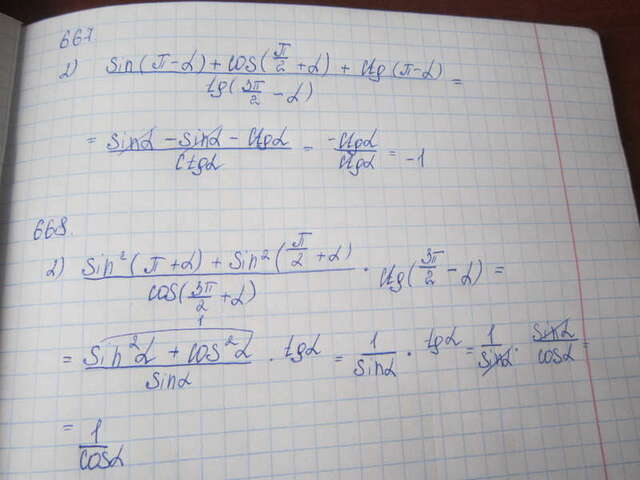 667
2) (sin(π-α) + cos(π/2 + α) + ctg(π-α)) / tg(3π/2 - α) =
= (sinα - sinα - ctgα) / ctgα = -ctgα / ctgα = -1
668.
2) (sin²(π+α) + sin²(π/2 + α)) / cos(3π/2 + α) · ctg(3π/2 - α) =
1
= (sin²α + cos²α) / sinα · tgα = 1/sinα · tgα = 1/sinα · sinα/cosα =
= 1/cosα